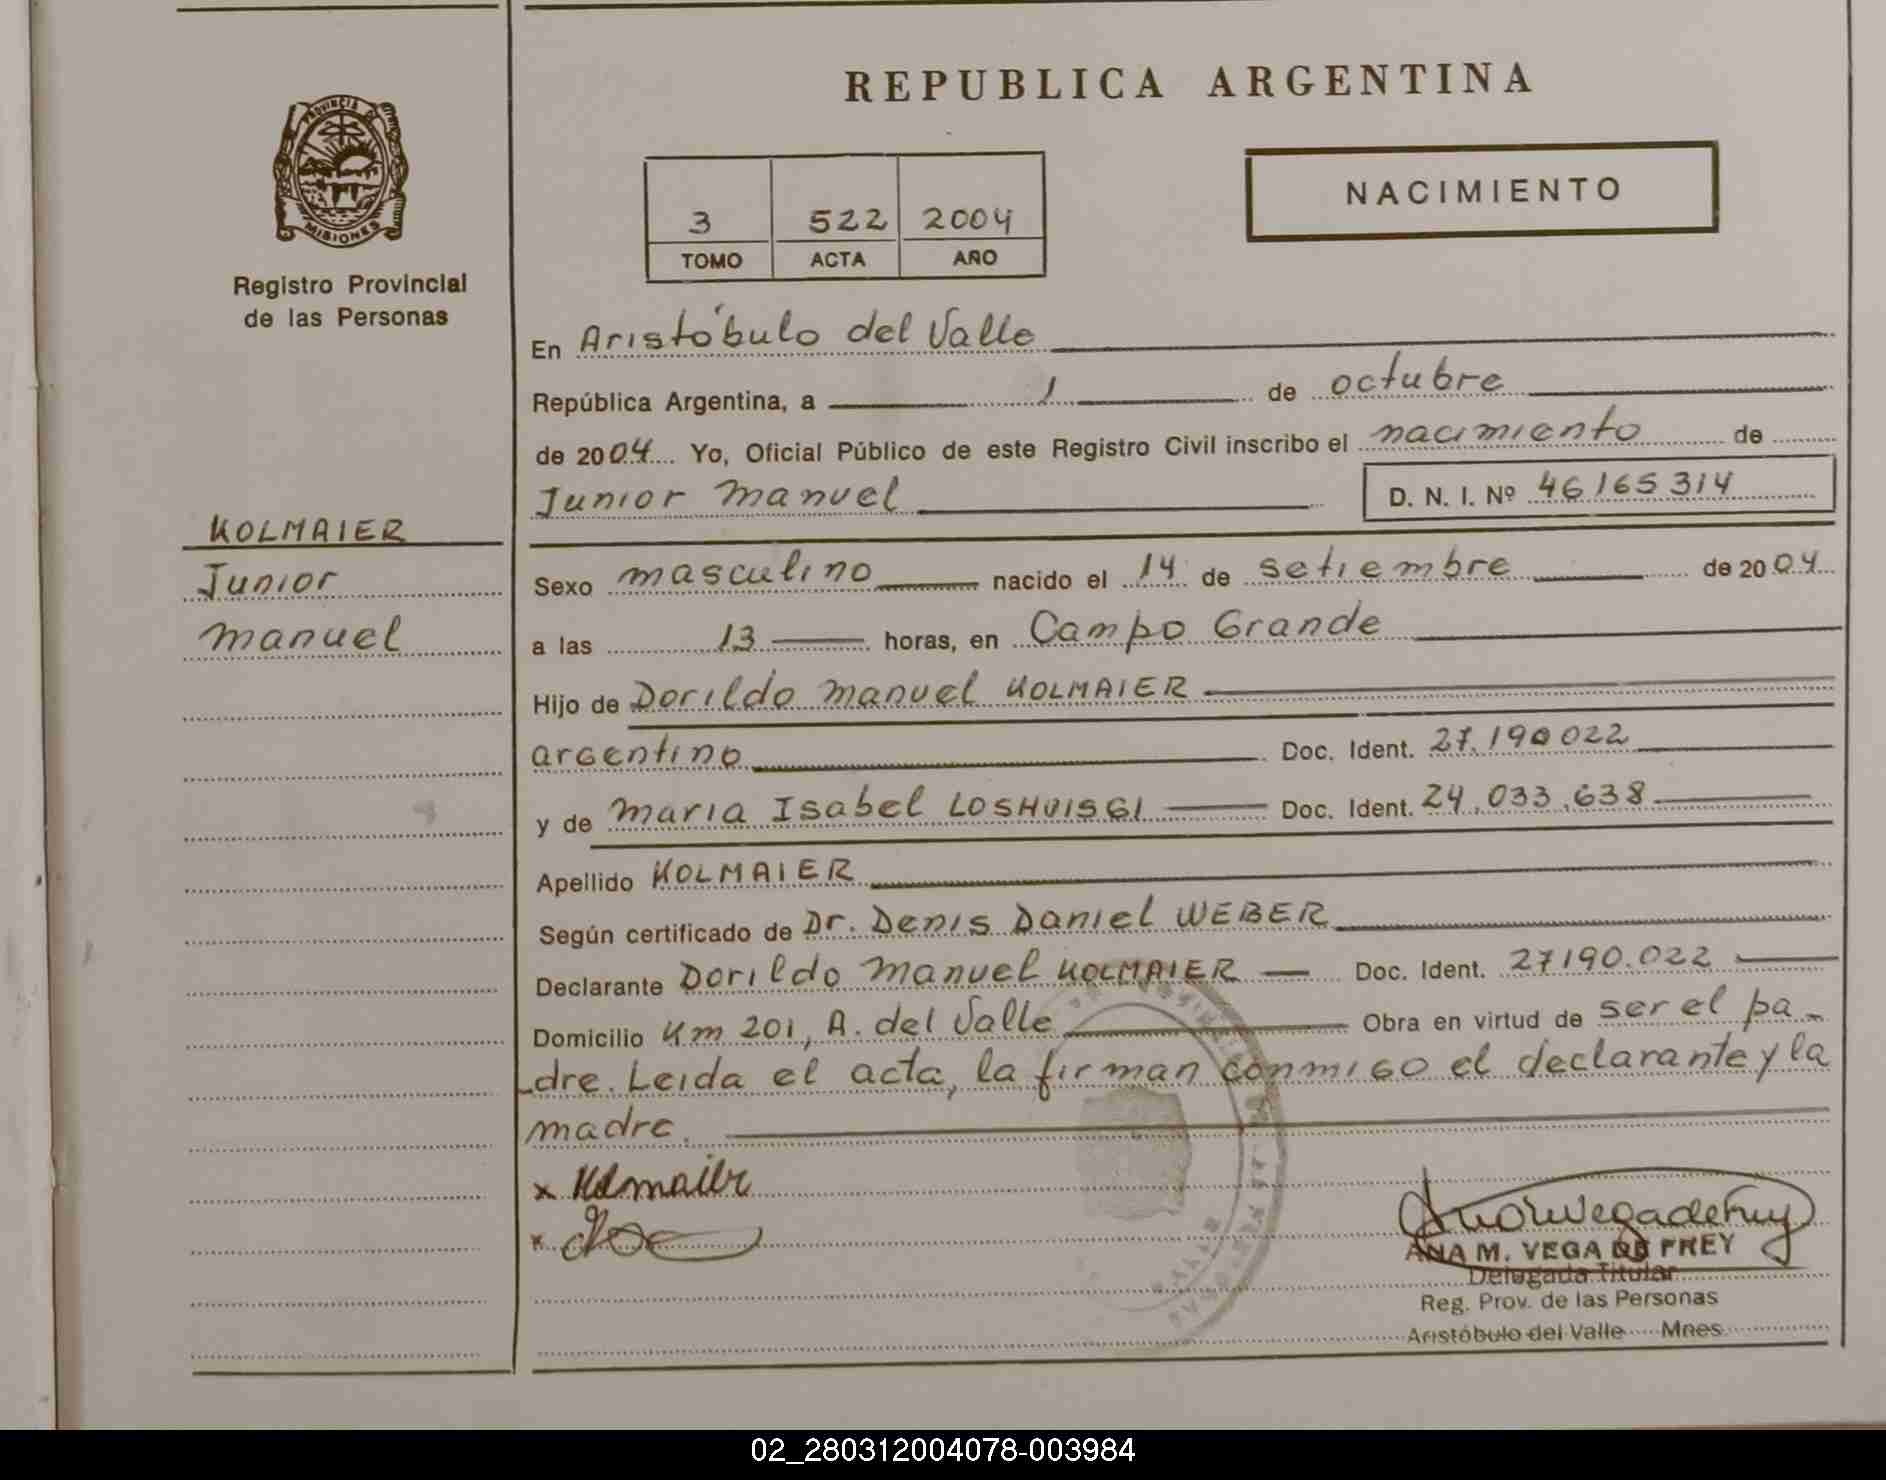 REPUBLICA ARGENTINA
NACIMIENTO
3 522 2004
TOMO ACTA AÑO
PROVINCIA DE
MISIONES
Registro Provincial
de las Personas
En Aristóbulo del Valle
República Argentina, a 1 de octubre
de 2004 Yo, Oficial Público de este Registro Civil inscribo el nacimiento de
Junior Manuel D. N. I. Nº 46165314
KOLMAIER
Junior
Manuel
Sexo masculino nacido el 14 de setiembre de 2004
a las 13 horas, en Campo Grande
Hijo de Dorildo Manuel KOLMAIER
argentino Doc. Ident. 27.190022
y de Maria Isabel LOSHUISGI Doc. Ident. 24.033.638
Apellido KOLMAIER
Según certificado de Dr. Denis Daniel WEBER
Declarante Dorildo Manuel KOLMAIER Doc. Ident. 27190.022
Domicilio Km 201, A. del Valle Obra en virtud de ser el pa-
-dre. Leida el acta, la firman conmigo el declarante y la
madre.
x Kolmaier
x
ANA M. VEGA DE FREY
Delegada Titular
Reg. Prov. de las Personas
Aristóbulo del Valle Mnes
02_280312004078-003984